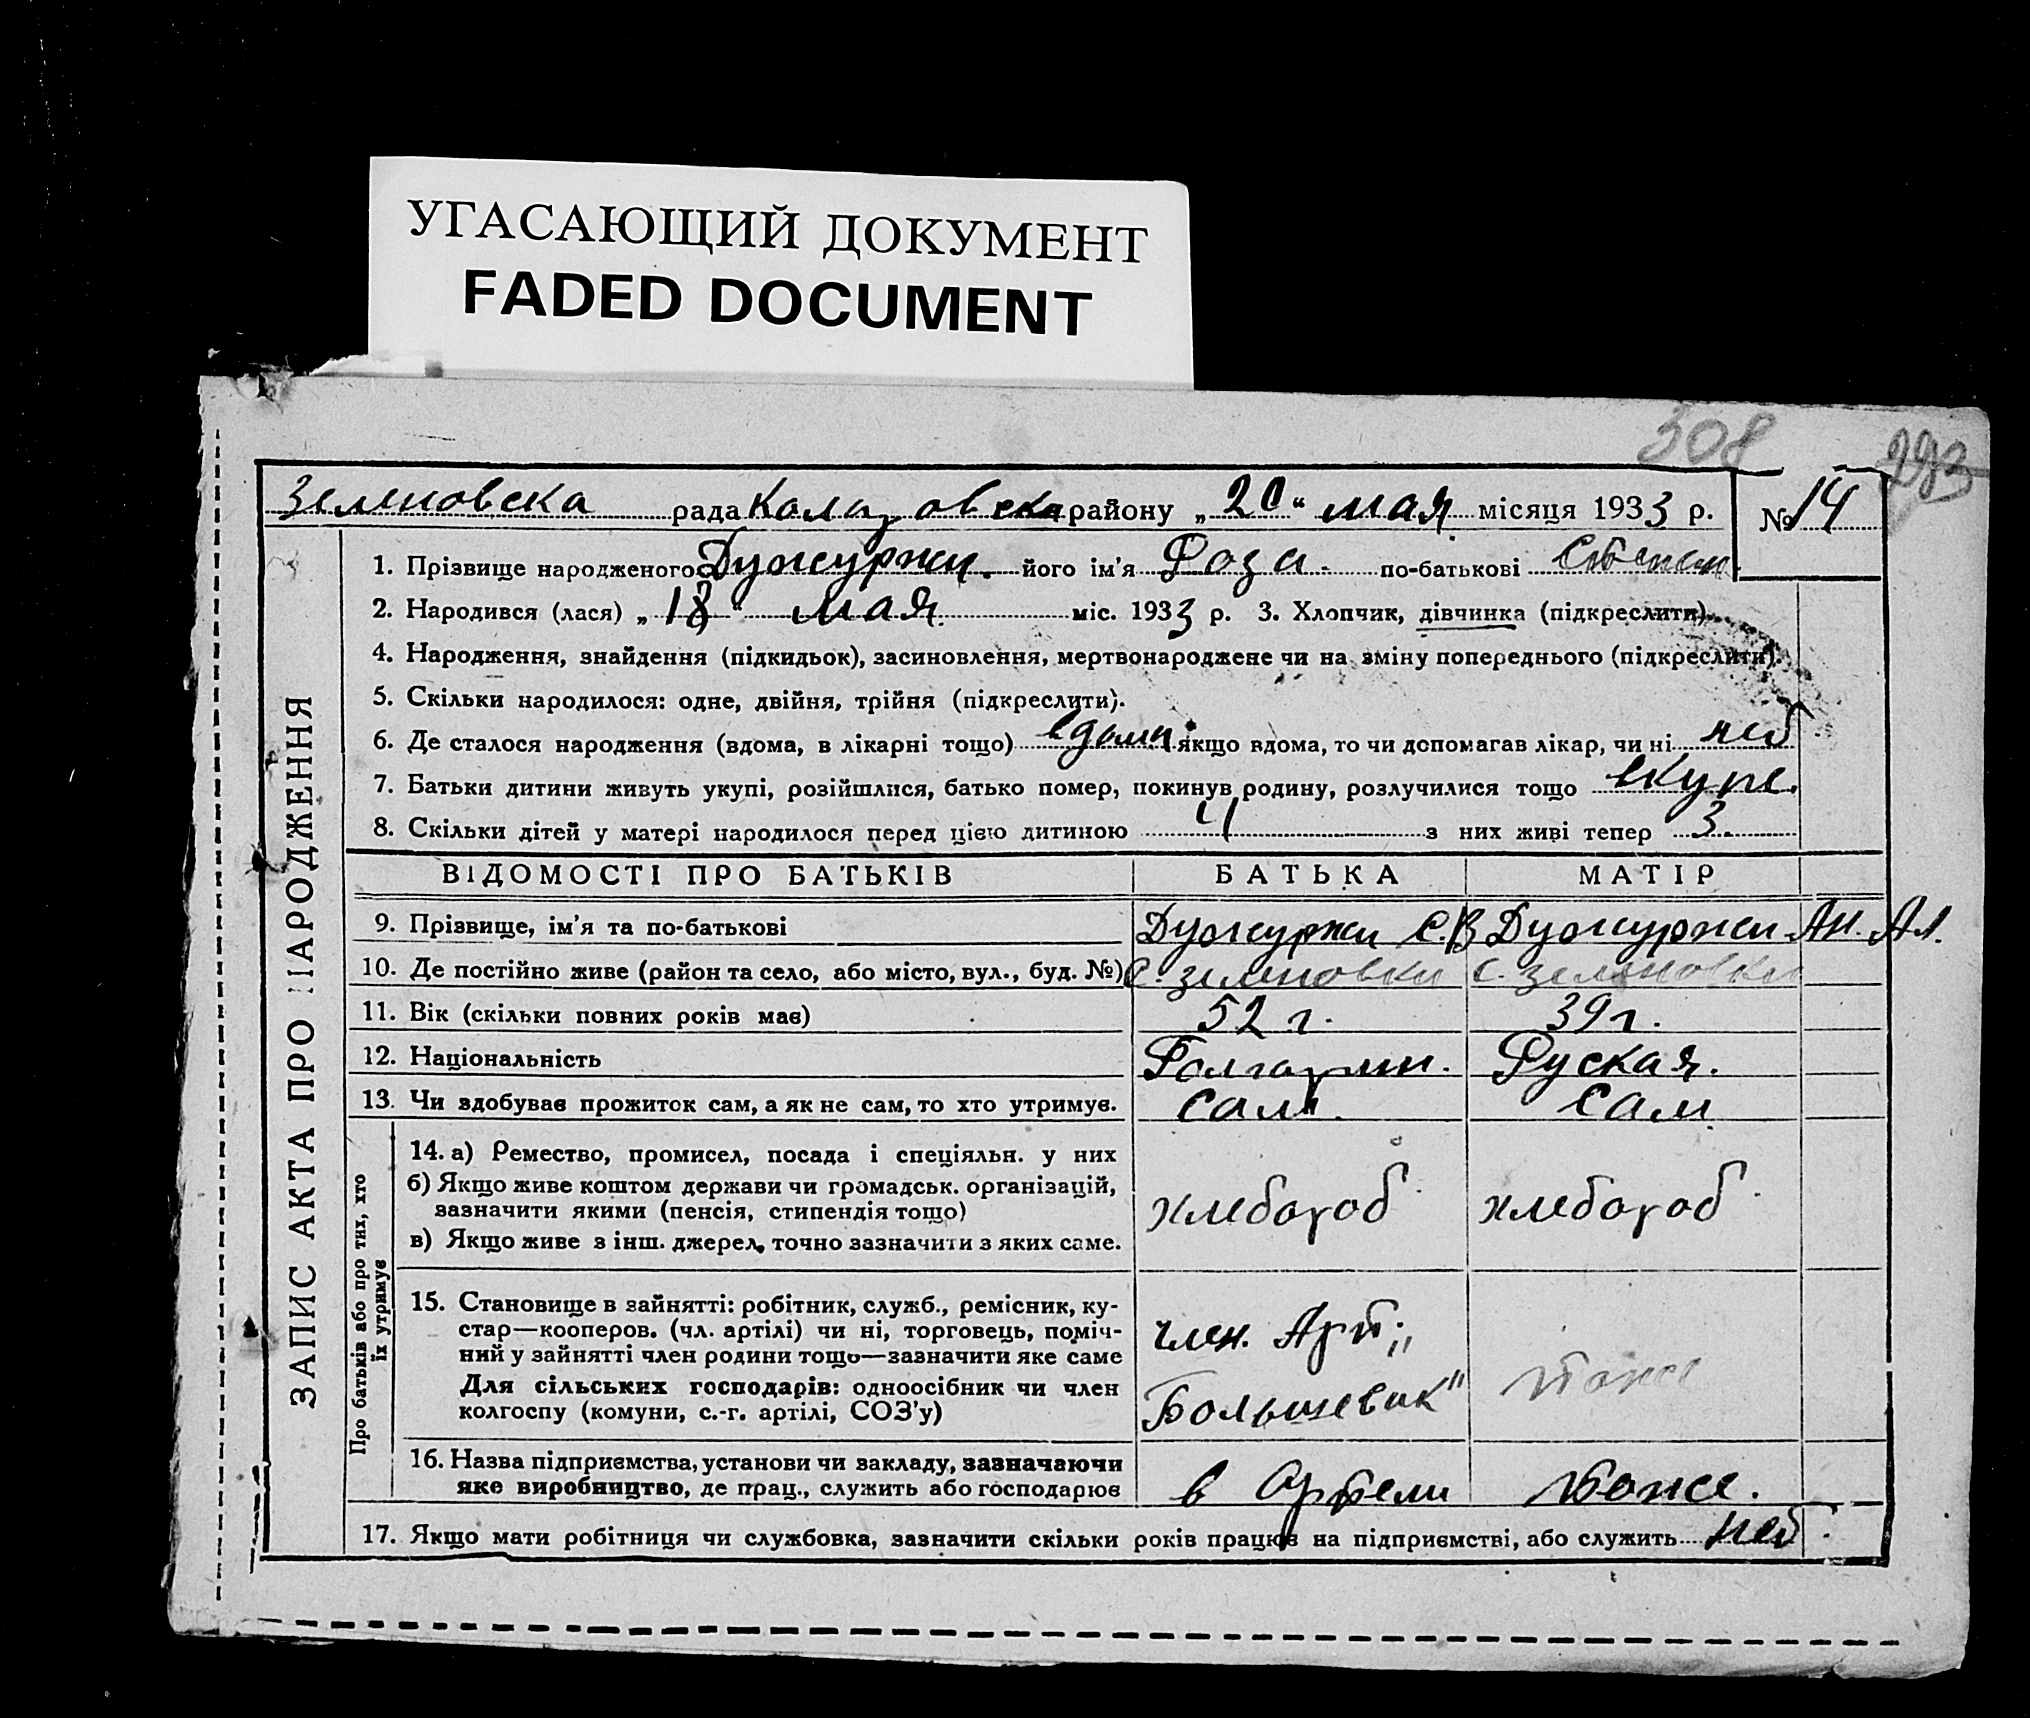 УГАСАЮЩИЙ ДОКУМЕНТ
FADED DOCUMENT
308 293
Зеленовска рада Коларовска району „20“ мая місяця 1933 р. № 14
ЗАПИС АКТА ПРО НАРОДЖЕННЯ
1. Прізвище народженого Дужуржи. його ім'я Роза. по-батькові Степан.
2. Народився (лася) „18“ мая міс. 1933 р. 3. Хлопчик, дівчинка (підкреслити).
4. Народження, знайдення (підкидьок), засиновлення, мертвонароджене чи на зміну попереднього (підкреслити).
5. Скільки народилося: одне, двійня, трійня (підкреслити).
6. Де сталося народження (вдома, в лікарні тощо) вдома якщо вдома, то чи допомагав лікар, чи ні нет
7. Батьки дитини живуть укупі, розійшлися, батько помер, покинув родину, розлучилися тощо вкупе.
8. Скільки дітей у матері народилося перед цією дитиною 4 з них живі тепер 3.
ВІДОМОСТІ ПРО БАТЬКІВ БАТЬКА МАТІР
9. Прізвище, ім'я та по-батькові Дужуржи С.В Дужуржи Ан. Ал.
10. Де постійно живе (район та село, або місто, вул., буд. №) с. Зеленовки с. Зеленовки
11. Вік (скільки повних років має) 52 г. 39 г.
12. Національність Болгарин. Руская.
13. Чи здобуває прожиток сам, а як не сам, то хто утримує. Сам. Сам
Про батьків або про тих, хто
їх утримує
14. а) Ремество, промисел, посада і спеціяльн. у них
б) Якщо живе коштом держави чи громадськ. організацій,
зазначити якими (пенсія, стипендія тощо) хлебороб хлебороб
в) Якщо живе з інш. джерел, точно зазначити з яких саме.
15. Становище в зайнятті: робітник, служб., ремісник, ку-
стар—кооперов. (чл. артілі) чи ні, торговець, поміч- член. Арт. „
ний у зайнятті член родини тощо—зазначити яке саме
Для сільських господарів: одноосібник чи член Большевик" тоже
колгоспу (комуни, с.-г. артілі, СОЗ'у)
16. Назва підприємства, установи чи закладу, зазначаючи
яке виробництво, де прац., служить або господарює в Артели тоже.
17. Якщо мати робітниця чи службовка, зазначити скільки років працює на підприємстві, або служить нет.